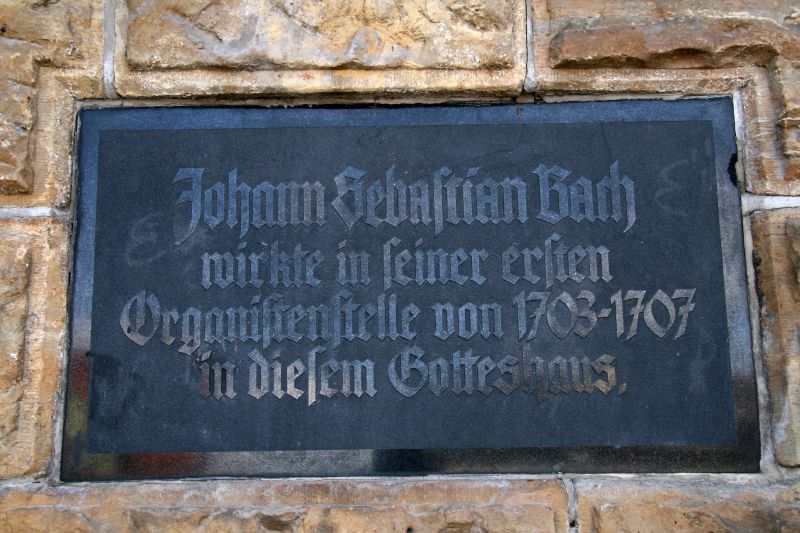 Johann Sebastian Bach
wirkte in seiner ersten
Organistenstelle von 1703-1707
in diesem Gotteshaus.